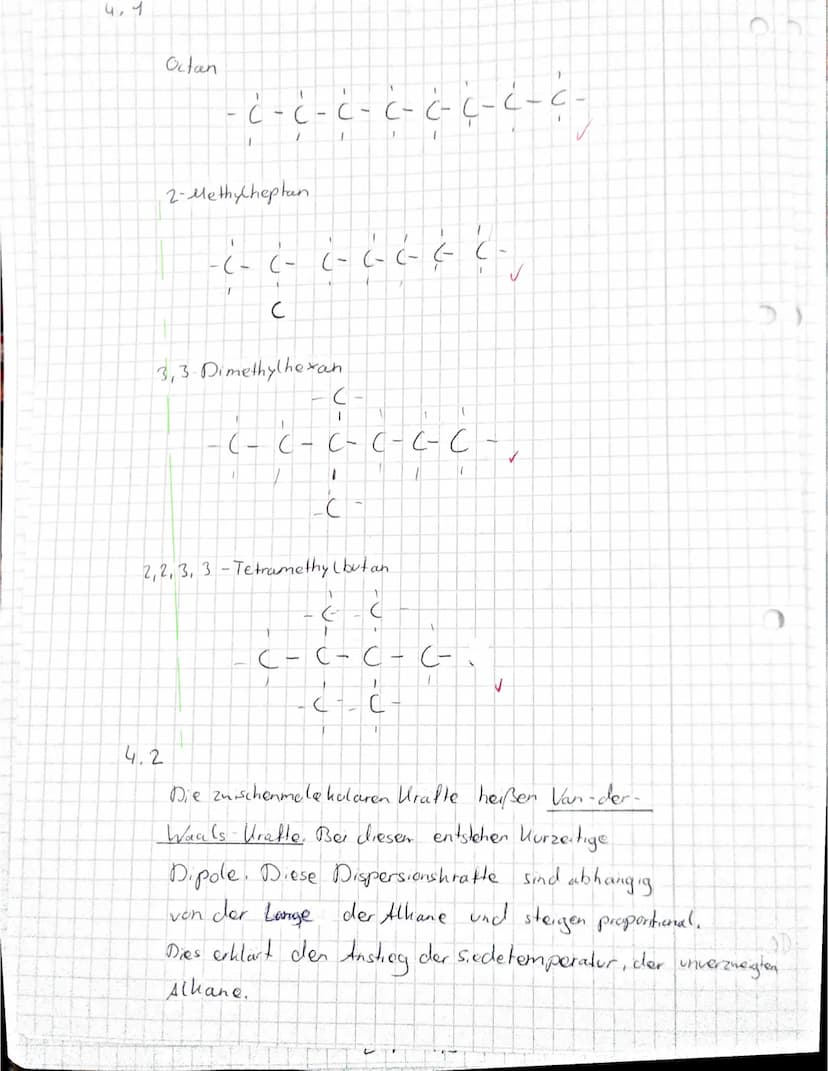 4.1
Octan
- C - C - C - C - C - C - C - C -
2-Methylheptan
- C - C - C - C - C - C - C -
C
3,3-Dimethylhexan
- C -
- C - C - C - C - C - C -
- C -
2,2,3,3-Tetramethylbutan
- C - C -
- C - C - C - C -
- C - C -
4.2
Die zwischenmolekularen Kräfte heißen Van-der-
Waals-Kräfte. Bei diesen entstehen kurzzeitige
Dipole. Diese Dispersionskräfte sind abhängig
von der Länge der Alkane und steigen proportional.
Dies erklärt den Anstieg der Siedetemperatur, der unverzweigten
Alkane.